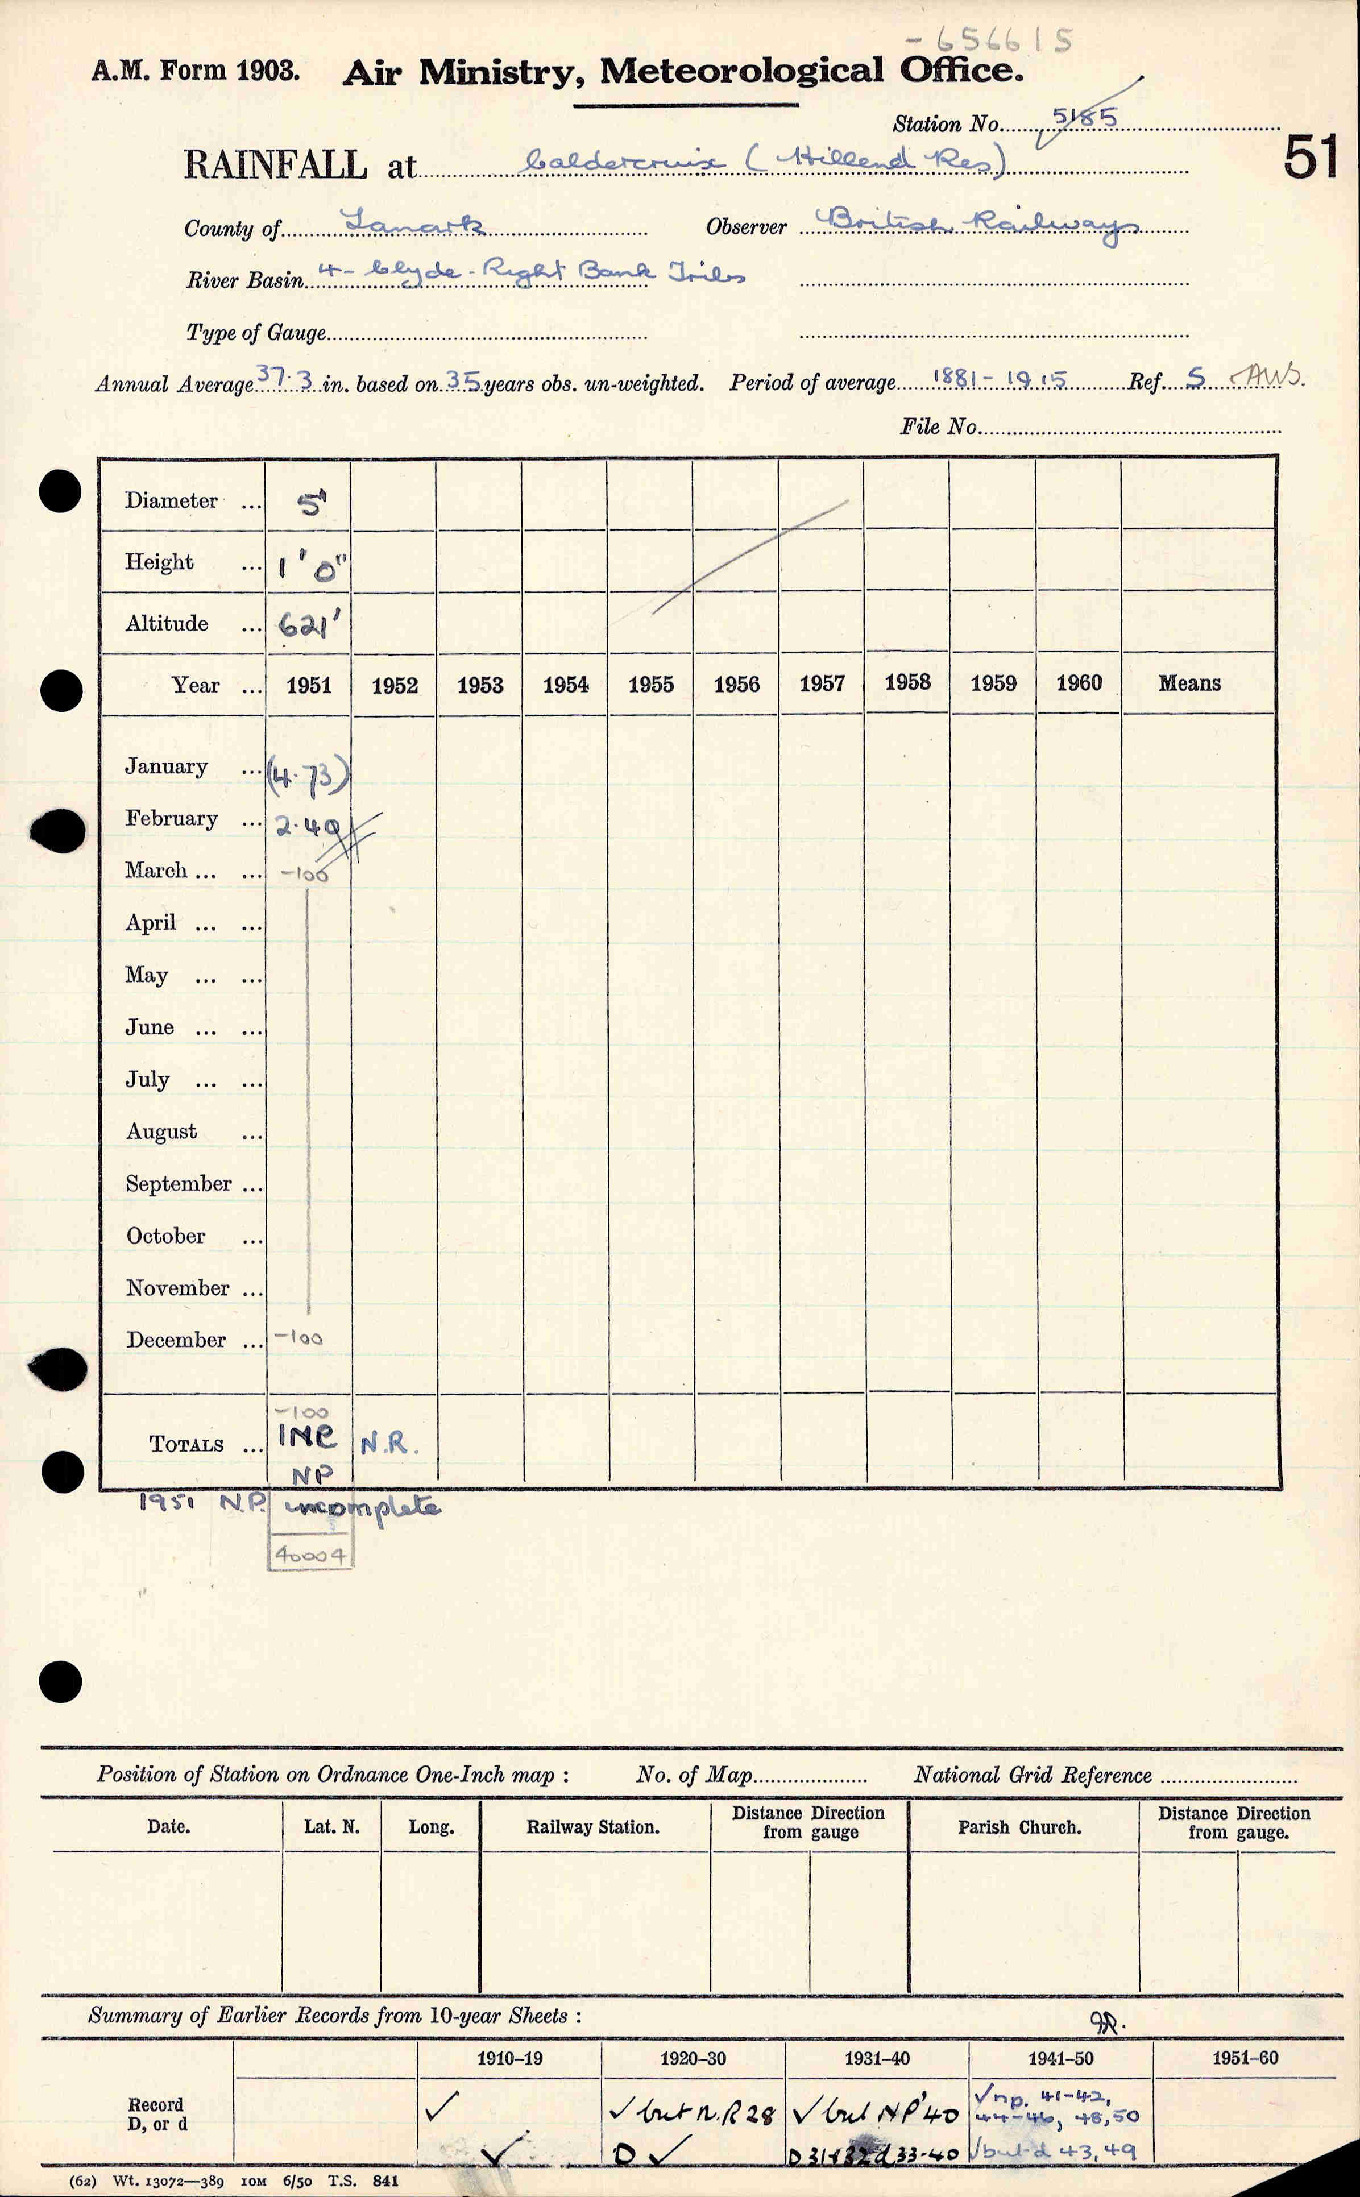 -656615
A.M. Form 1903. Air Ministry, Meteorological Office.
Station No. 5185
51
RAINFALL at Caldercruix (Hillend Res)
County of Lanark Observer British Railways
River Basin 4-Clyde-Right Bank Tribs
Type of Gauge
Annual Average 37.3 in. based on 35 years obs. un-weighted. Period of average 1881-1915 Ref. S AWS.
File No.
Diameter ... 5"
Height ... 1' 0"
Altitude ... 621'
Year ... 1951 1952 1953 1954 1955 1956 1957 1958 1959 1960 Means
January ... (4.73)
February ... 2.40
March ... ... -100
April ... ...
May ... ...
June ... ...
July ... ...
August ...
September ...
October ...
November ...
December ... -100
-100
TOTALS ... INC N.R.
NP
1951 N.P. incomplete
40004
Position of Station on Ordnance One-Inch map : No. of Map National Grid Reference
Date. Lat. N. Long. Railway Station. Distance Direction from gauge Parish Church. Distance Direction from gauge.
Summary of Earlier Records from 10-year Sheets :
1910-19 1920-30 1931-40 1941-50 1951-60
Record ✓ ✓ but N.R 28 ✓ but NP '40 ✓ np. 41-42, 44-46, 48,50
D, or d ✓ D ✓ D 31+32 d 33-40 ✓ but d 43,49
(62) Wt. 13072—389 10M 6/50 T.S. 841